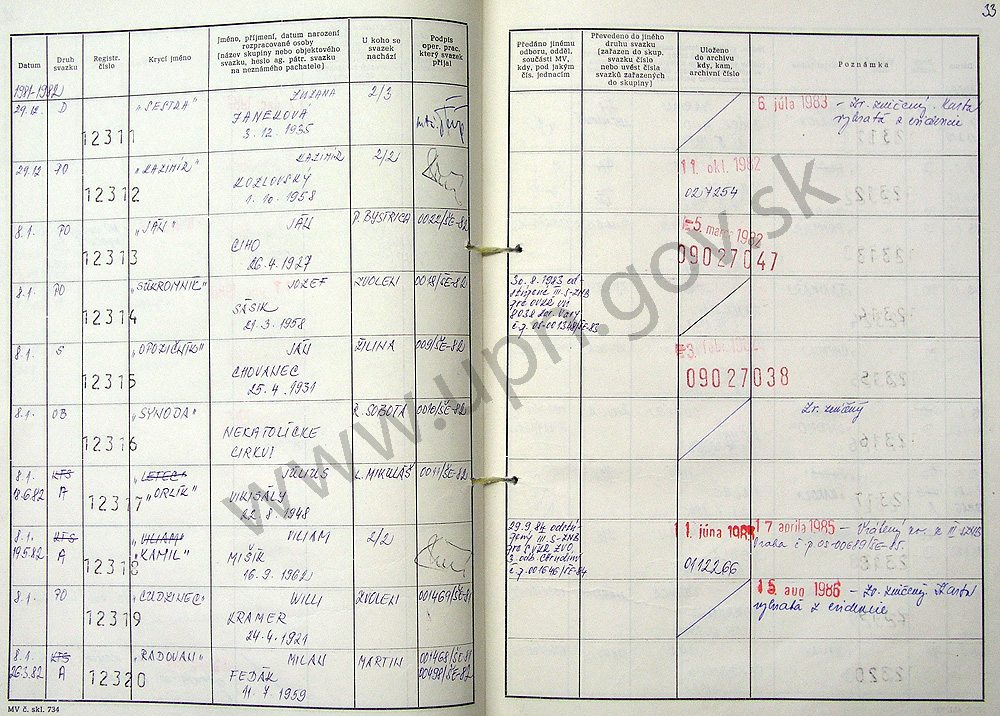 33
Datum
Druh
svazku
Registr.
číslo
Krycí jméno
Jméno, příjmení, datum narození
rozpracované osoby
[název skupiny nebo objektového
svazku, heslo ag. pátr. svazku
na neznámého pachatele]
U koho se
svazek
nachází
Podpis
oper. prac.
který svazek
přijal
Předáno jinému
odboru, odděl.
součásti MV,
kdy, pod jakým
čís. jednacím
Převedeno do jiného
druhu svazku
[zařazen do skup.
svazku číslo
nebo uvést čísla
svazků zařazených
do skupiny]
Uloženo
do archivu
kdy, kam,
archivní číslo
Poznámka
1981-1982
29.12. D 12311 "SESTRA" ZUZANA 2/3
JANEKOVÁ
3. 12. 1935
6. júla 1983 - Zv. zničený. Karta
vybratá z evidencie
29.12 PO 12312 "KAZIMÍR" KAZIMÍR 2/2
KOZLOVSKÝ
1. 10. 1958
11. okt. 1982
027254
8.1. PO 12313 "JÁN" JÁN P. BYSTRICA 0022/ŠE-82
CIHO
26. 4. 1927
5. marca 1982
09027047
8.1. PO 12314 "SÚKROMNÍK" JOZEF ZVOLEN 0018/ŠE-82
SÁSIK
21. 3. 1958
30. 8. 1983
III. S-ZNB
8.1. S 12315 "OPOZIČNÍK" JÁN ŽILINA 009/ŠE-82
CHOVANEC
25. 4. 1931
3. feb. 1982
09027038
8.1. OB 12316 "SYNODA" R. SOBOTA 0010/ŠE-82
NEKATOLÍCKE
CIRKVI
Zv. zničený
8.1. KTS 12317 "LETEC" JÚLIUS L. MIKULÁŠ 0011/ŠE-82
A "ORLÍK"
22. 8. 1948
8.1. KTS 12318 "VILIAM" VILIAM 2/2
19.5.82 A "KAMIL" MIŠÍK
16. 9. 1962
29. 9. 84
III. S-ZNB
11. júna 1985
0112266
17. apríla 1985 - Vrátený zv.
8.1. PO 12319 "CUDZINEC" WILLI ZVOLEN 001469/ŠE-81
KRAMER
24. 4. 1921
15. aug 1986 - Zv. zničený. Karta
vybratá z evidencie
8.1. KTS 12320 "RADOVAN" MILAN MARTIN 001468/ŠE-81
26.3.82 A FEDÁK 00498/ŠE-82
11. 7. 1959
MV č. skl. 734
www.upn.gov.sk